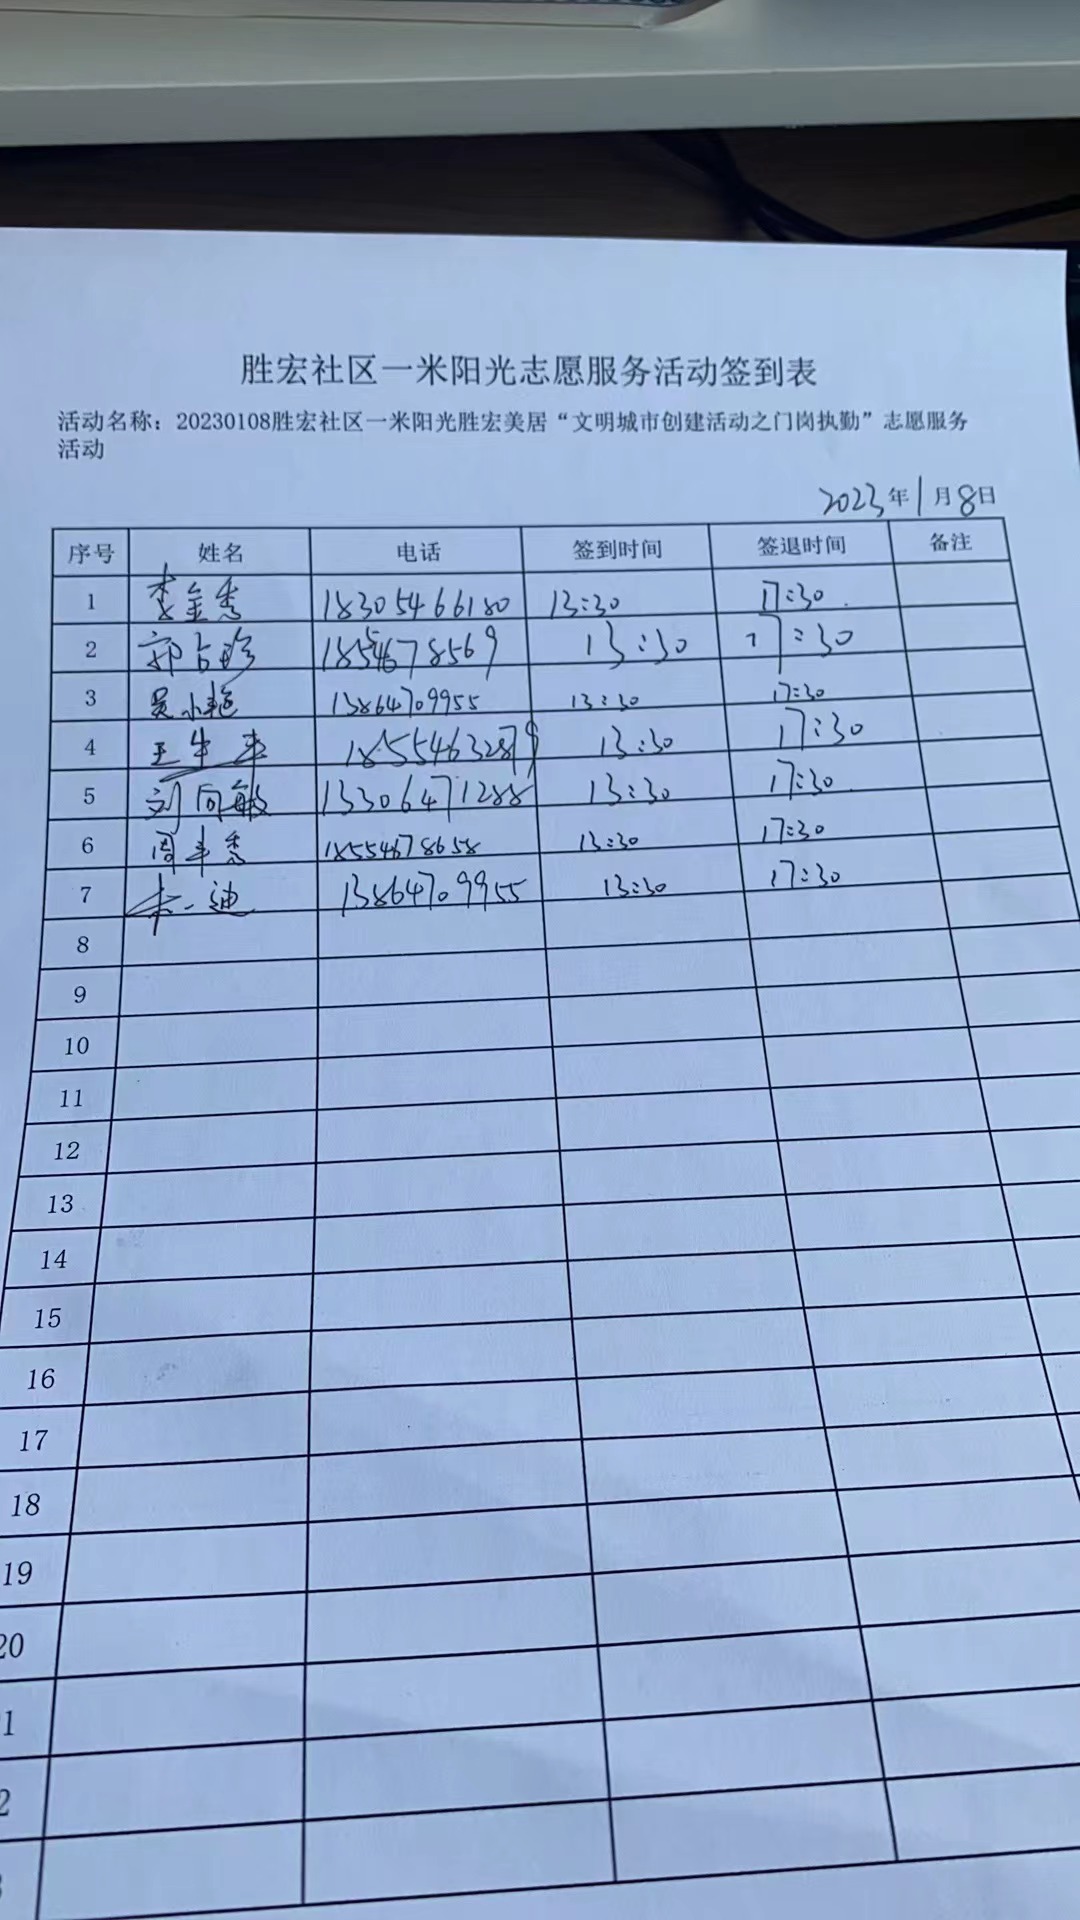 胜宏社区一米阳光志愿服务活动签到表
活动名称：20230108胜宏社区一米阳光胜宏美居“文明城市创建活动之门岗执勤”志愿服务
活动
2023年1月8日
序号 姓名 电话 签到时间 签退时间 备注
1 李金秀 18305466180 13:30 17:30
2 郭占珍 18554678569 13:30 17:30
3 吴小艳 13864709955 13:30 17:30
4 王生 13:30 17:30
5 刘向敏 13306471288 13:30 17:30
6 周丰秀 18554678658 13:30 17:30
7 一迪 13864709955 13:30 17:30
8
9
10
11
12
13
14
15
16
17
18
19
20
1
2